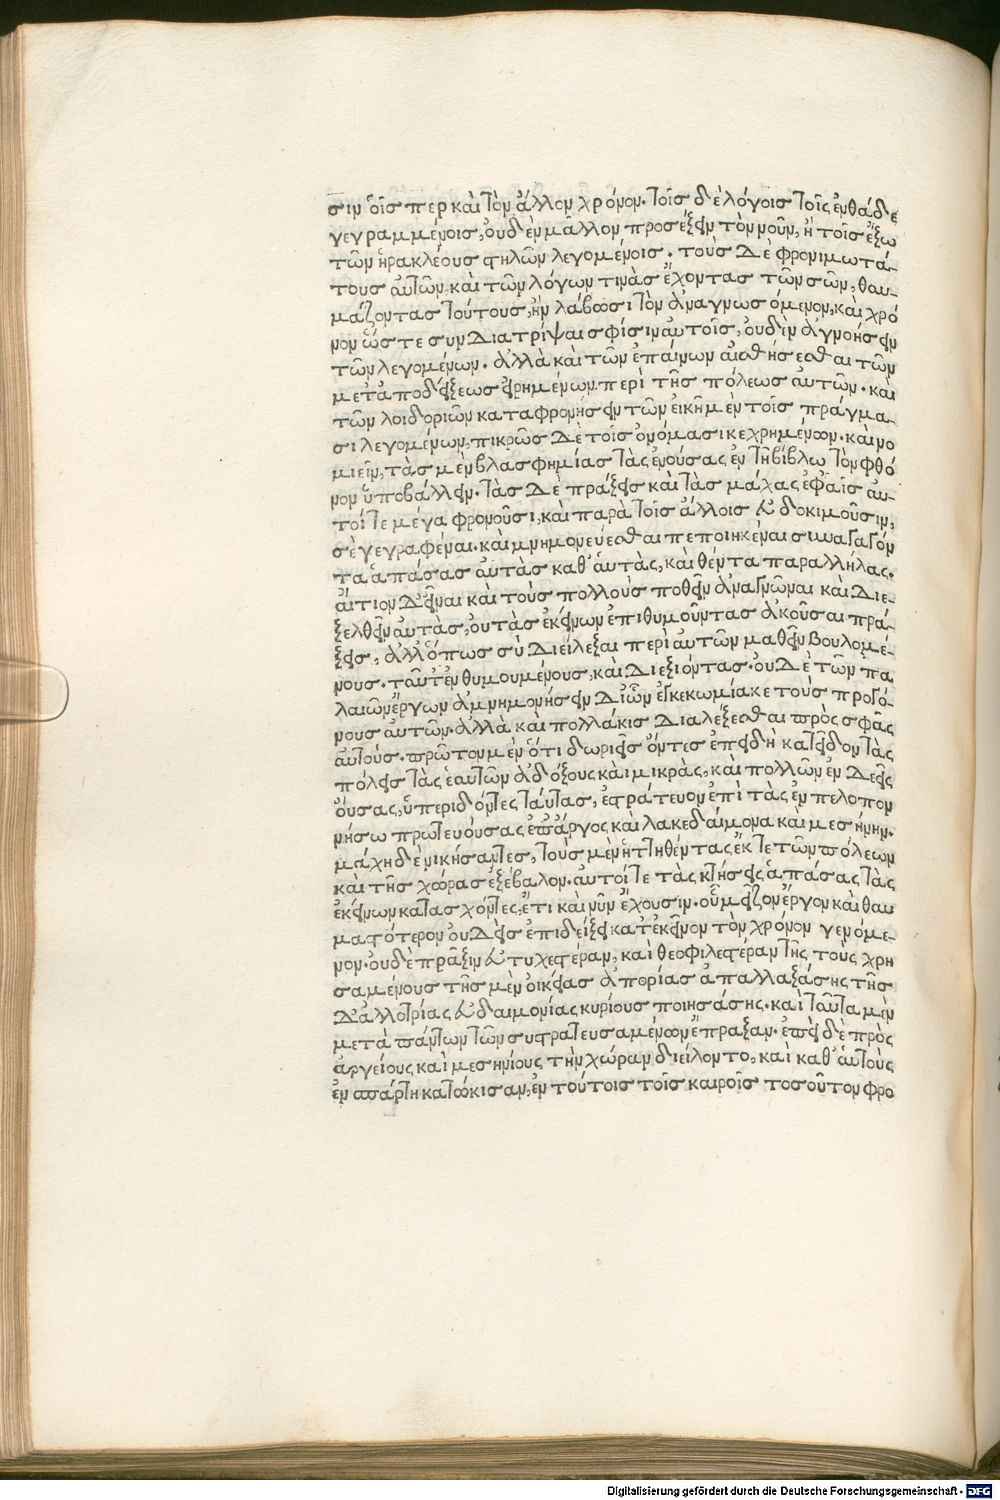 σιν οἷς περ καὶ τὸν ἄλλον χρόνον. τοῖς δὲ λόγοις τοῖς ἐνθάδε
γεγραμμένοις, οὐδὲν μᾶλλον προσέξειν τὸν νοῦν, ἢ τοῖς ἔξω
τῶν ἡρακλέους στηλῶν λεγομένοις. τοὺς δὲ φρονιμωτά-
τους αὐτῶν, καὶ τῶν λόγων τινὰς ἔχοντας τῶν σῶν, θαυ-
μάζοντας τούτους, ἢν λάβωσι τὸν ἀναγνωσόμενον, καὶ χρό
νον ὥστε συνδιατρίψαι σφίσιν αὐτοῖς, οὐδὲν ἀγνοήσειν
τῶν λεγομένων. ἀλλὰ καὶ τῶν ἐπαίνων αἰσθήσεσθαι τῶν
μετ' ἀποδείξεως εἰρημένων περὶ τῆς πόλεως αὐτῶν. καὶ
τῶν λοιδοριῶν καταφρονήσειν τῶν εἰκῆ μὲν τοῖς πράγμα-
σι λεγομένων, πικρῶς δὲ τοῖς ὀνόμασι κεχρημένων. καὶ νο
μιεῖν, τὰς μὲν βλασφημίας τὰς ἐνούσας ἐν τῇ βίβλω τὸν φθό
νον ὑποβάλλειν. τὰς δὲ πράξεις καὶ τὰς μάχας ἐφ' αἷς αὐ-
τοί τε μέγα φρονοῦσι, καὶ παρὰ τοῖς ἄλλοις εὐδοκιμοῦσιν,
σὲ γεγραφέναι. καὶ μνημονεύεσθαι πεποιηκέναι συναγαγόν
τα ἁπάσας αὐτὰς καθ' αὑτὰς, καὶ θέντα παραλλήλας.
αἴτιον δ' εἶναι καὶ τοὺς πολλοὺς ποθεῖν ἀναγνῶναι καὶ διε-
ξελθεῖν αὐτὰς, οὐ τὰς ἐκείνων ἐπιθυμοῦντας ἀκοῦσαι πρά-
ξεις, ἀλλ' ὅπως σὺ διείλεξαι περὶ αὐτῶν μαθεῖν βουλομέ-
νους. ταῦτ' ἐνθυμουμένους, καὶ διεξιόντας. οὐδὲ τῶν πα
λαιῶν ἔργων ἀμνημονήσειν δι' ὧν ἐγκεκωμίακε τοὺς προγό-
νους αὐτῶν. ἀλλὰ καὶ πολλάκις διαλέξεσθαι πρὸς σφᾶς
αὐτούς. πρῶτον μὲν ὅτι δωριεῖς ὄντες ἐπειδὴ κατεῖδον τὰς
πόλεις τὰς ἑαυτῶν ἀδόξους καὶ μικρὰς, καὶ πολλῶν ἐνδεεῖς
οὔσας, ὑπεριδόντες ταύτας, ἐστράτευον ἐπὶ τὰς ἐν πελοπον
νήσω πρωτευούσας ἐπ' ἄργος καὶ λακεδαίμονα καὶ μεσήνην.
μάχη δὲ νικήσαντες, τοὺς μὲν ἡττηθέντας ἔκ τε τῶν πόλεων
καὶ τῆς χώρας ἐξέβαλον. αὐτοί τε τὰς κτήσεις ἁπάσας τὰς
ἐκείνων κατασχόντες, ἔτι καὶ νῦν ἔχουσιν. οὗ μεῖζον ἔργον καὶ θαυ
μαστότερον οὐδεὶς ἐπιδείξει κατ' ἐκεῖνον τὸν χρόνον γενόμε-
νον. οὐδὲ πρᾶξιν εὐτυχεστέραν, καὶ θεοφιλεστέραν τῆς τοὺς χρη
σαμένους τῆς μὲν οἰκείας ἀπορίας ἀπαλλαξάσης τῆς
δ' ἀλλοτρίας εὐδαιμονίας κυρίους ποιησάσης. καὶ ταῦτα μὲν
μετὰ πάντων τῶν συστρατευσαμένων ἔπραξαν. ἐπεὶ δὲ πρὸς
ἀργείους καὶ μεσηνίους τὴν χώραν διείλοντο, καὶ καθ' αὑτοὺς
ἐν σπάρτη κατώκισαν, ἐν τούτοις τοῖς καιροῖς τοσοῦτον φρο
Digitalisierung gefördert durch die Deutsche Forschungsgemeinschaft - DFG